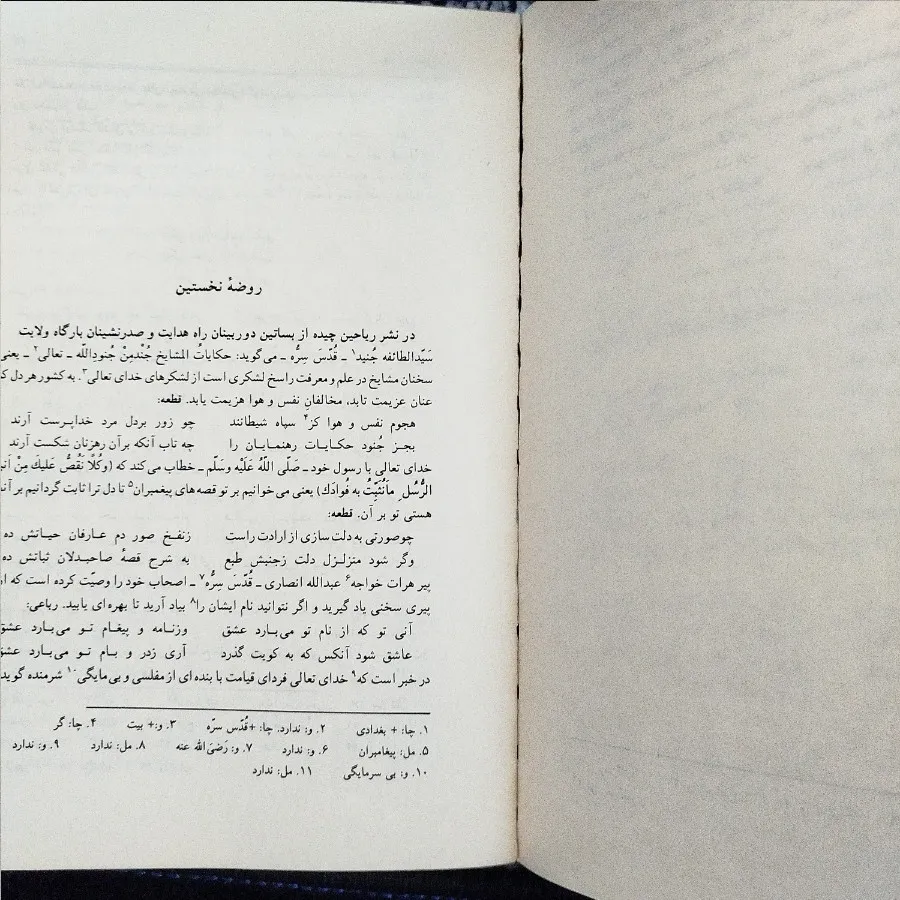 روضهٔ نخستین
در نشر ریاحین چیده از بساتین دوربینان راه هدایت و صدرنشینان بارگاه ولایت
سَیّدالطائفه جُنید۱ ـ قُدّسَ سِرُّه ـ می‌گوید: حکایاتُ المشایخ جُندمِنْ جُنودِاللّه ـ تعالی۲ ـ یعنی
سخنان مشایخ در علم و معرفت راسخ لشکری است از لشکرهای خدای تعالی۳. به کشور هر دل که
عنان عزیمت تابد، مخالفانِ نفس و هوا هزیمت یابد. قطعه:
هجوم نفس و هوا کز۴ سپاه شیطانند چو زور بردل مرد خداپرست آرند
بجز جُنود حکایات رهنمایان را چه تاب آنکه برآن رهزنان شکست آرند
خدای تعالی با رسول خود ـ صَلّی اللّهُ عَلَیْه وسَلّم ـ خطاب می‌کند که (وکُلّا نَقُصُّ عَلیكَ مِنْ
الرُّسُل ِ مانُثَبِّتُ به فُوادَك) یعنی می‌خوانیم بر تو قصه‌های پیغمبران۵ تا دل ترا ثابت گردانیم بر
هستی تو بر آن. قطعه:
چوصورتی به دلت سازی از ارادت راست زنفخ صور دم عارفان حیاتش ده
وگر شود متزلـزل دلت زجنبش طبع به شرح قصهٔ صاحبدلان ثباتش ده
پیر هرات خواجه۶ عبدالله انصاری ـ قُدّسَ سِرُّه۷ ـ اصحاب خود را وصیّت کرده است که از
پیری سخنی یاد گیرید و اگر نتوانید نام ایشان را۸ بیاد آرید تا بهره‌ای یابید. رباعی:
آنی تو که از نام تو می‌بارد عشق وزنامه و پیغام تو می‌بارد عشق
عاشق شود آنکس که به کویت گذرد آری زدر و بام تو می‌بارد عشق
در خبر است که۹ خدای تعالی فردای قیامت با بنده‌ای از مفلسی و بی‌مایگی۱۰ شرمنده گوید
۱. چا: + بغدادی ۲. و: ندارد. چا: +قُدّس سرّه ۳. و:+ بیت ۴. چا: گر
۵. مل: پیغامبران ۶. و: ندارد ۷. و: رَضیَ‌الله عنه ۸. مل: ندارد ۹. و: ندارد
۱۰. و: بی سرمایگی ۱۱. مل: ندارد